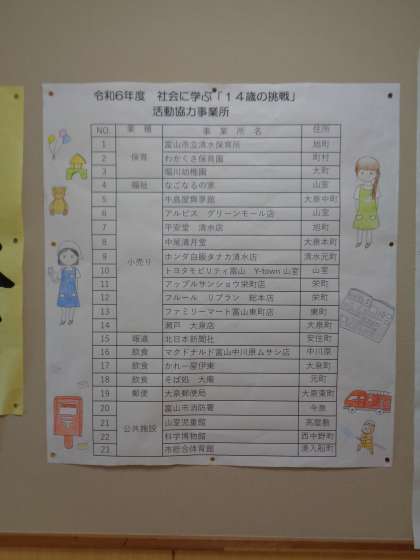 令和6年度 社会に学ぶ「14歳の挑戦」
活動協力事業所
NO. 業種 事業所名 住所
1 保育 富山市立清水保育所 旭町
2 わかくさ保育園 町村
3 堀川幼稚園 大町
4 福祉 なごなるの家 山室
5 小売り 牛島屋 大泉中町
6 アルビス グリーンモール店 山室
7 平安堂 清水店 旭町
8 中尾清月堂 大泉本町
9 ホンダ自販タナカ清水店 清水元町
10 トヨタモビリティ富山 Y-town 山室 山室
11 アップルサンショウ栄町店 栄町
12 フルール リブラン 総本店 栄町
13 ファミリーマート富山東町店 東町
14 瀬戸 大泉店 大泉町
15 報道 北日本新聞社 安住町
16 飲食 マクドナルド富山中川原ムサシ店 中川原
17 飲食 かれー屋伊東 大泉町
18 飲食 そば処 大庵 元町
19 郵便 大泉郵便局 大泉東町
20 公共施設 富山市消防署 今泉
21 山室児童館 高屋敷
22 科学博物館 西中野町
23 市総合体育館 湊入船町